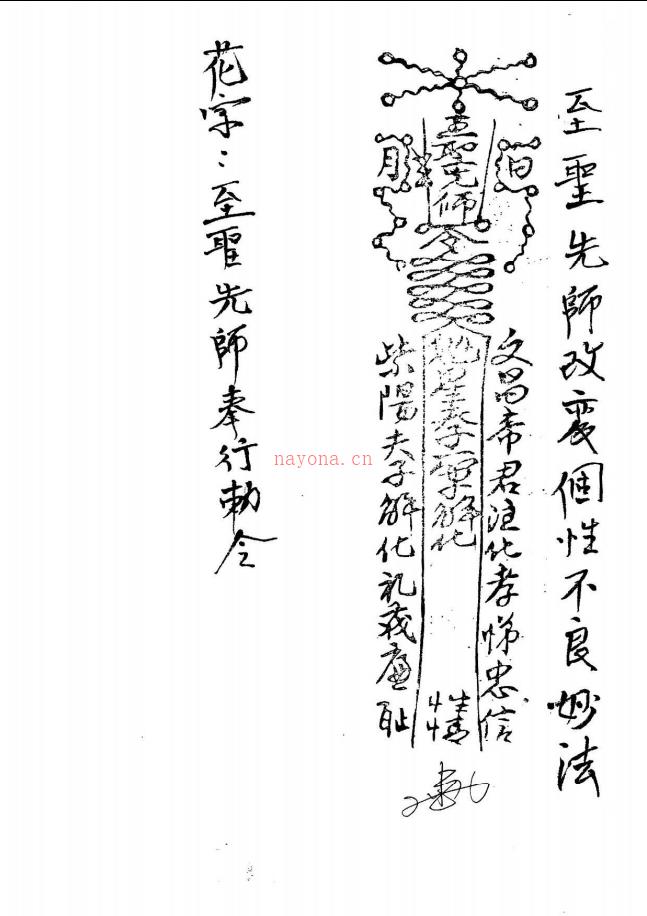 至聖先師改變個性不良妙法
日
文昌帝君注化孝悌忠信
至聖先師
令
解化
情
月
紫陽夫子解化礼義廉耻
花字:至聖先師奉行勅令
nayona.cn